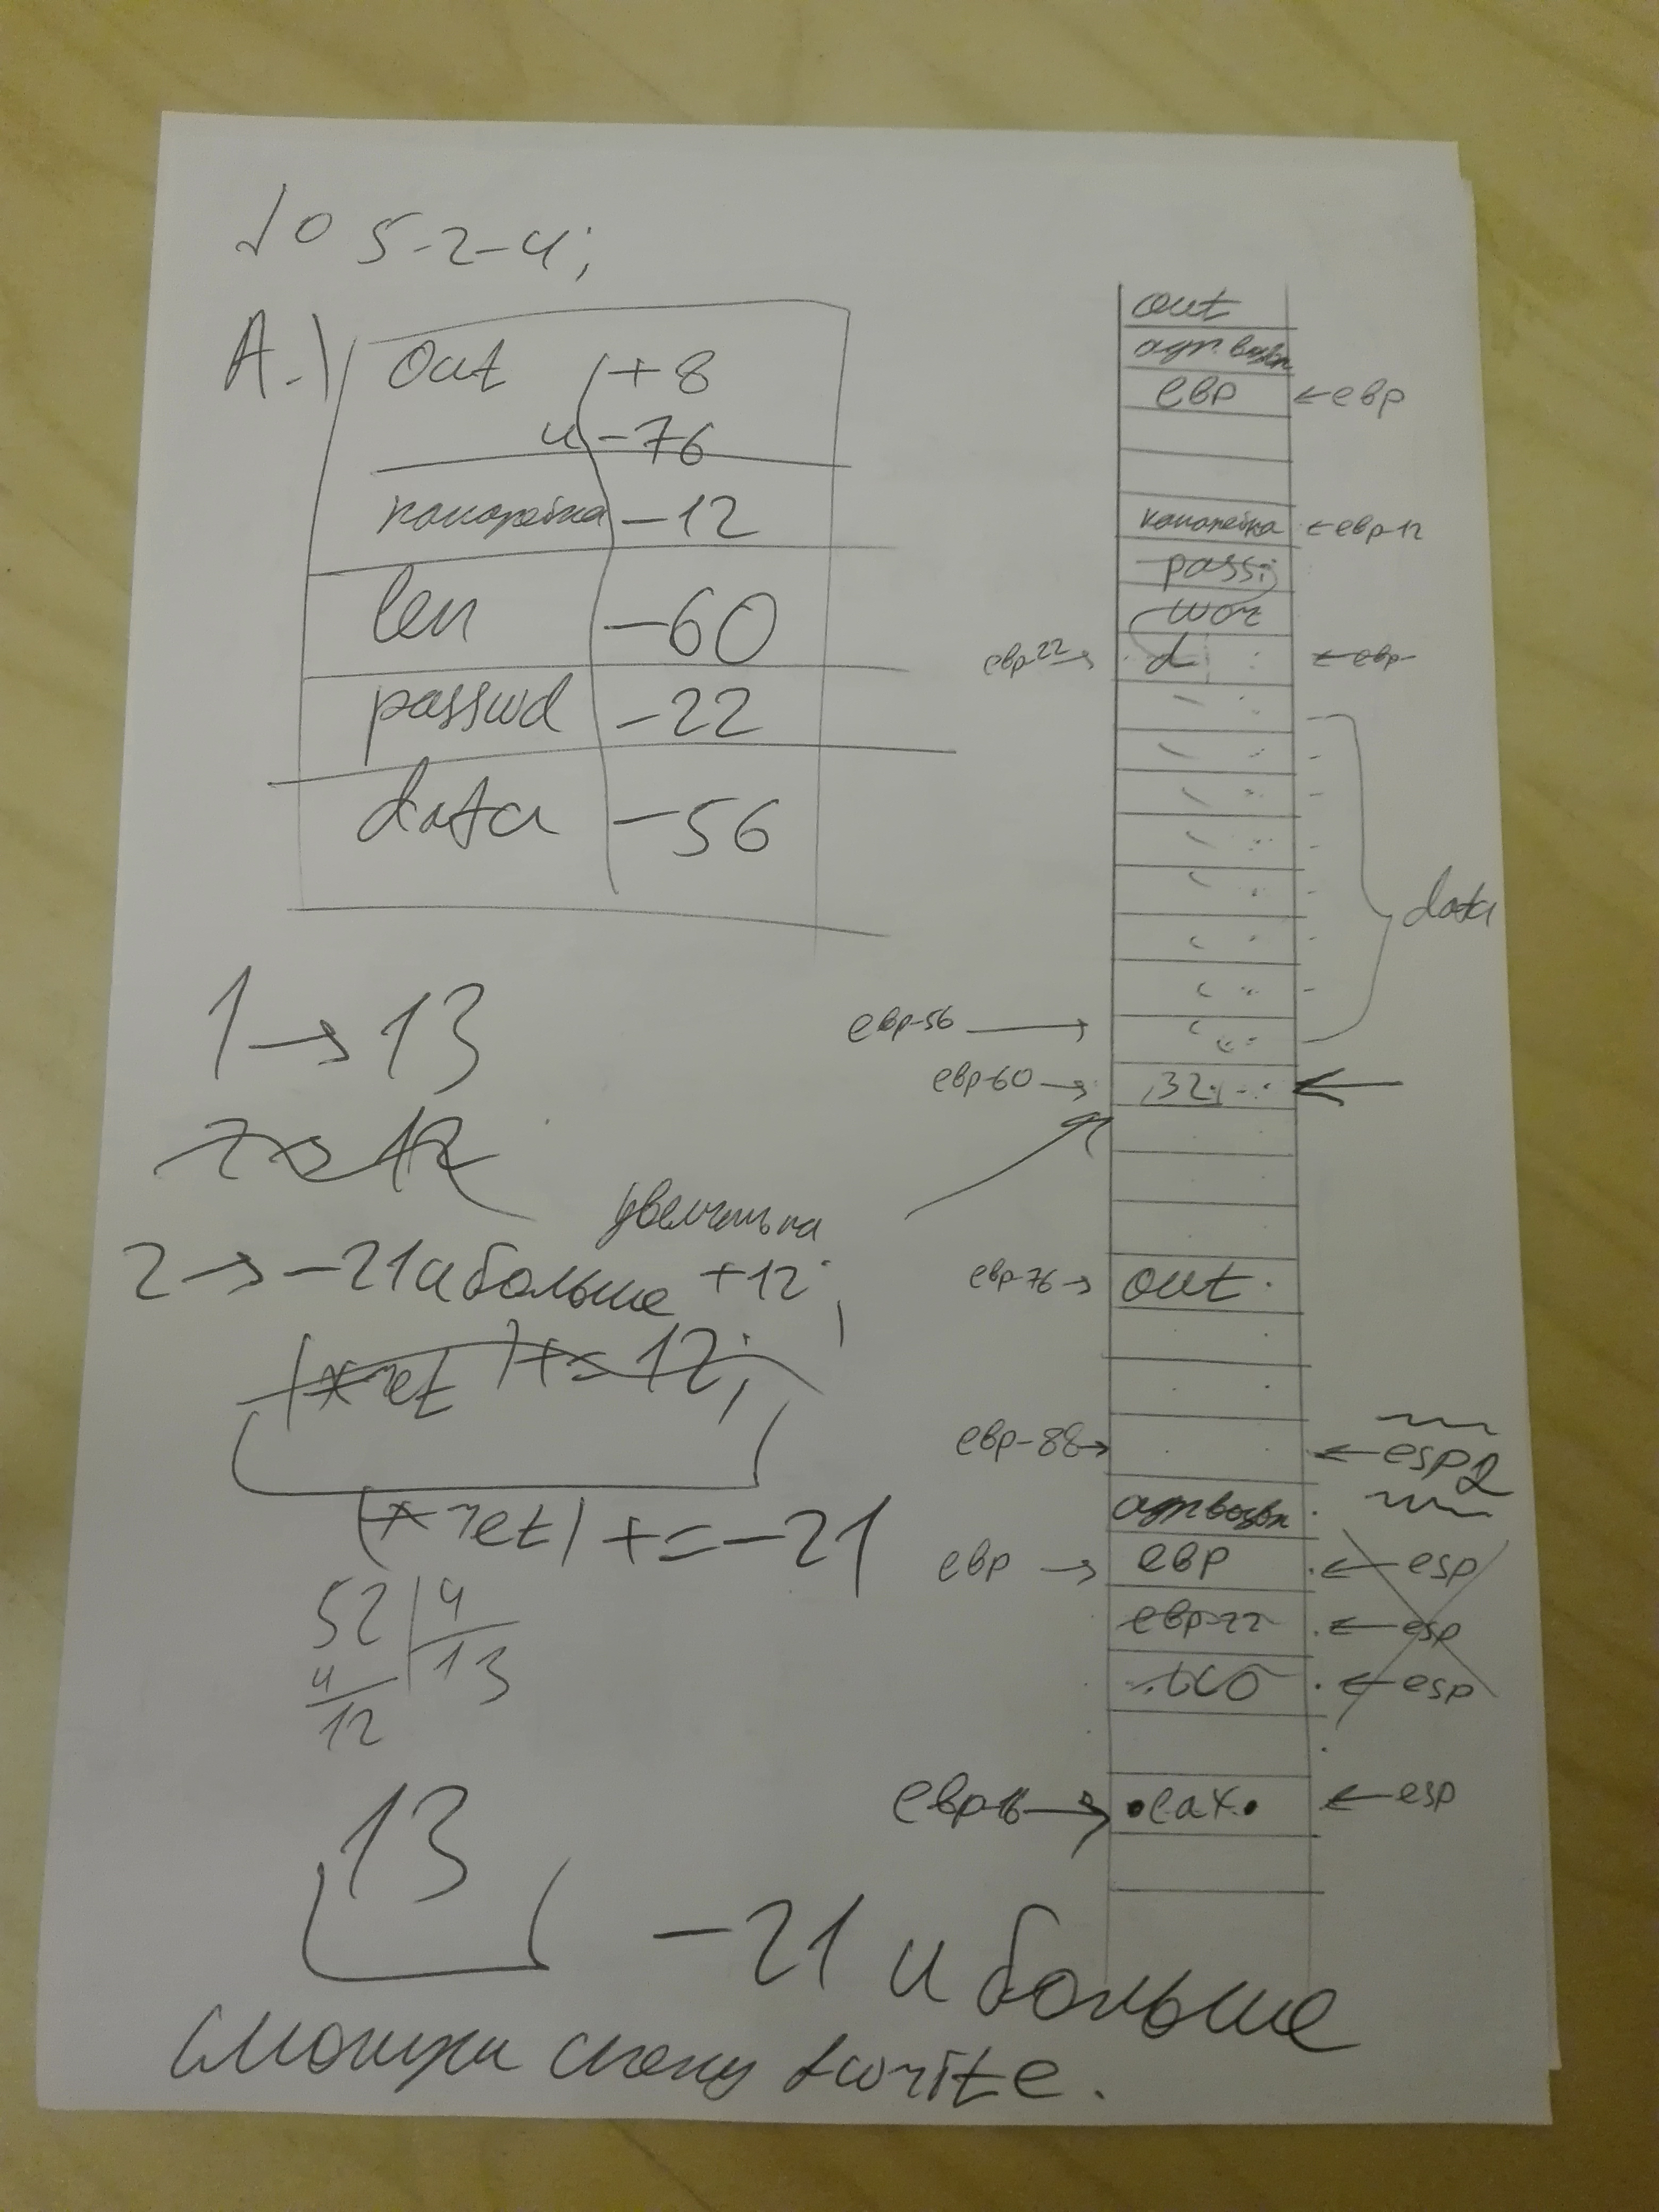 № 5-2-4;
A.)
out +8
и -76
канарейка -12
len -60
passwd -22
data -56
1 → 13
2 → -21 и больше +12;
увеличить на
(*ret) += 12;
(*ret) += -21
52 | 4
4 13
12
13
-21 и больше
смотри схему fwrite.
out
адр. возвр.
ebp ← ebp
канарейка ← ebp-12
pass
wor
ebp-22 → d ← ebp
data
ebp-56 →
ebp-60 → 32 ←
ebp-76 → out
ebp-88 → ← esp2
адр возвр
ebp → ebp ← esp
ebp-22 ← esp
← esp
→ eax ← esp